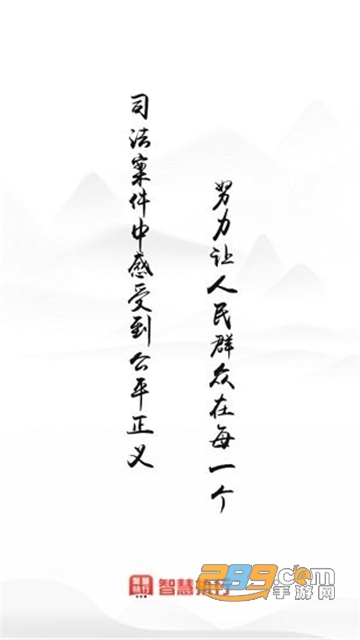 努力让人民群众在每一个
司法案件中感受到公平正义
智慧执行
289.com
手游网